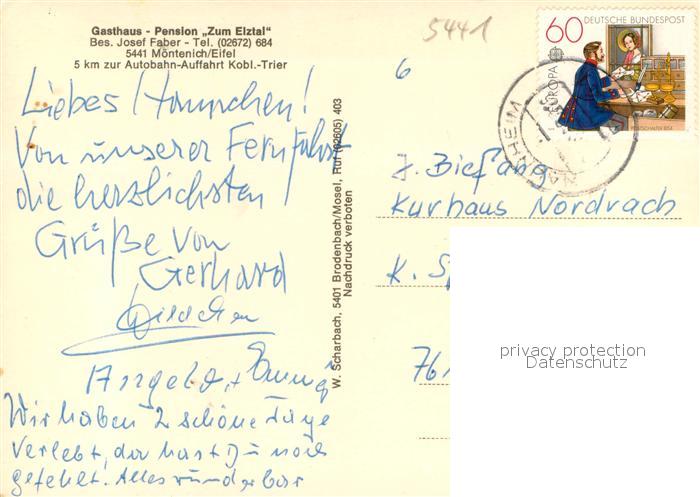 Gasthaus - Pension „Zum Elztal"
Bes. Josef Faber - Tel. (02672) 684
5441 Möntenich/Eifel
5 km zur Autobahn-Auffahrt Kobl.-Trier
Liebes Hannchen!
Von unserer Fernfahrt
die herzlichsten
Grüße von
Gerhard
Angela + Emmi
Wir haben 2 schöne Tage
verlebt, da hast Du noch
gefehlt. Alles wunderbar
W. Scharbach, 5401 Brodenbach/Mosel, Ruf (02605) 403
Nachdruck verboten
5441
6
60 DEUTSCHE BUNDESPOST
EUROPA
MANNHEIM
J. Biefang
Kurhaus Nordrach
K. Sp
761
privacy protection
Datenschutz